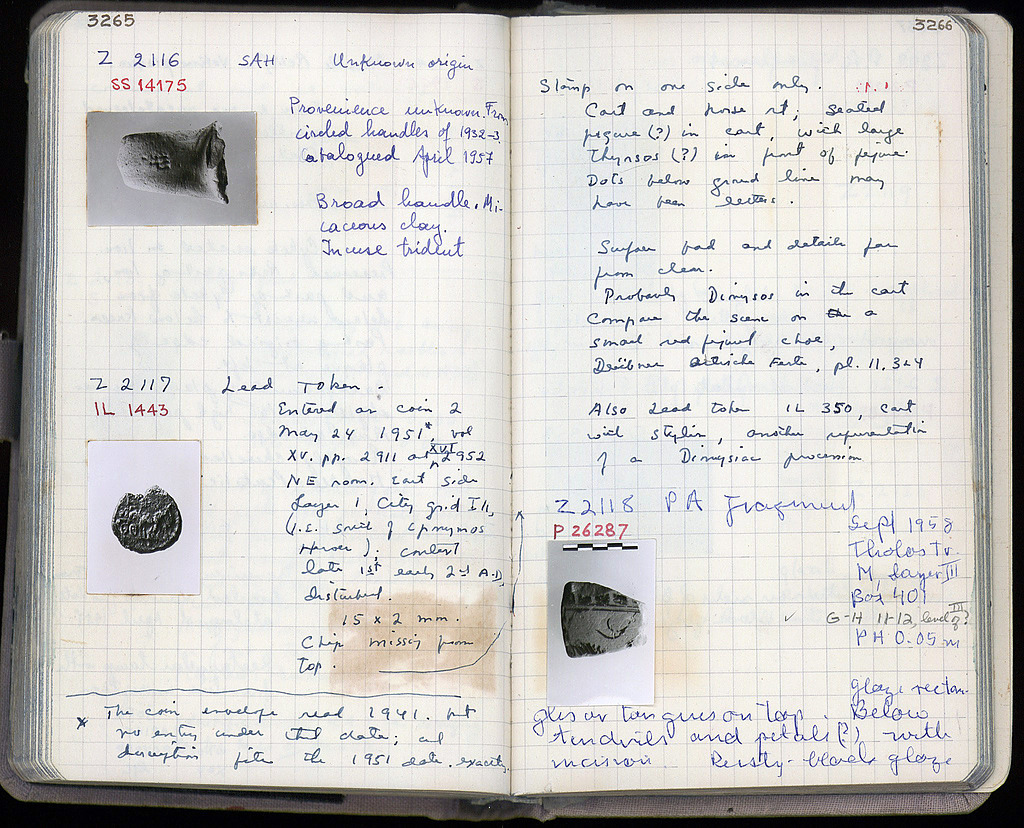 3265
Z 2116 SAH Unknown origin
SS 14175
Provenience unknown. From
circled handles of 1932-3.
Catalogued April 1957
Broad handle. Mi-
caceous clay.
Incuse trident
Z 2117 Lead Token.
IL 1443
Entered as coin 2
May 24 1951*, vol
XV. pp. 2911 and XVI 2952
NE room. East side
Layer 1, City grid
(i.e. south of Eponymos
Heroes); context
late 1st early 2nd A.D,
disturbed.
15 x 2 mm.
Chip missing from
top.
* The coin envelope read 1941. but
no entry under that date; and
description fits the 1951 date exactly.
3266
Stamp on one side only.
Cart and horse rt; seated
figure (?) in cart, with large
thyrsos (?) in front of figure.
Dots below ground line may
have been letters.
Surface bad and details far
from clear.
Probably Dionysos in the cart
Compare the scene on the a
small red figured choe,
Deübner Attische Feste, pl. 11, 3 & 4
Also Lead token IL 350, cart
with , another representation
of a Dionysiac procession
Z 2118 PA Fragment
P 26287
Sept 1958
Tholos Tr.
M, Layer III
Box 401
✓ G-H 11-12, level III of?
PH 0.05 m
glaze rectan-
gles or tongues on top. Below
tendrils and petals (?) with
incision. Rusty-black glaze